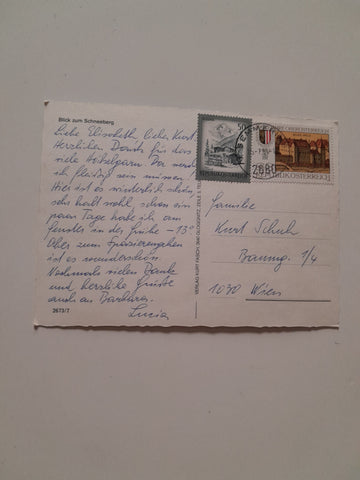 Blick zum Schneeberg
Liebe Elisabeth, lieber Kurt
Herzlichen Dank für das
viele Häkelgarn. Da werde
ich fleißig sein müssen!
Hier ist es winterlich schön,
sehr kalt wohl, schon ein
paar Tage habe ich am
fenster in der frühe -13°
Aber zum spazierengehen
ist es wunderschön.
Nochmals vielen Dank
und herzliche Grüße
auch an Barbara.
Luzia
2673/7
VERLAG KURT FRISCH, 2640 GLOGGNITZ
REPUBLIK ÖSTERREICH
Familie
Kurt Schuh
Baumg. 1/4
1030 Wien